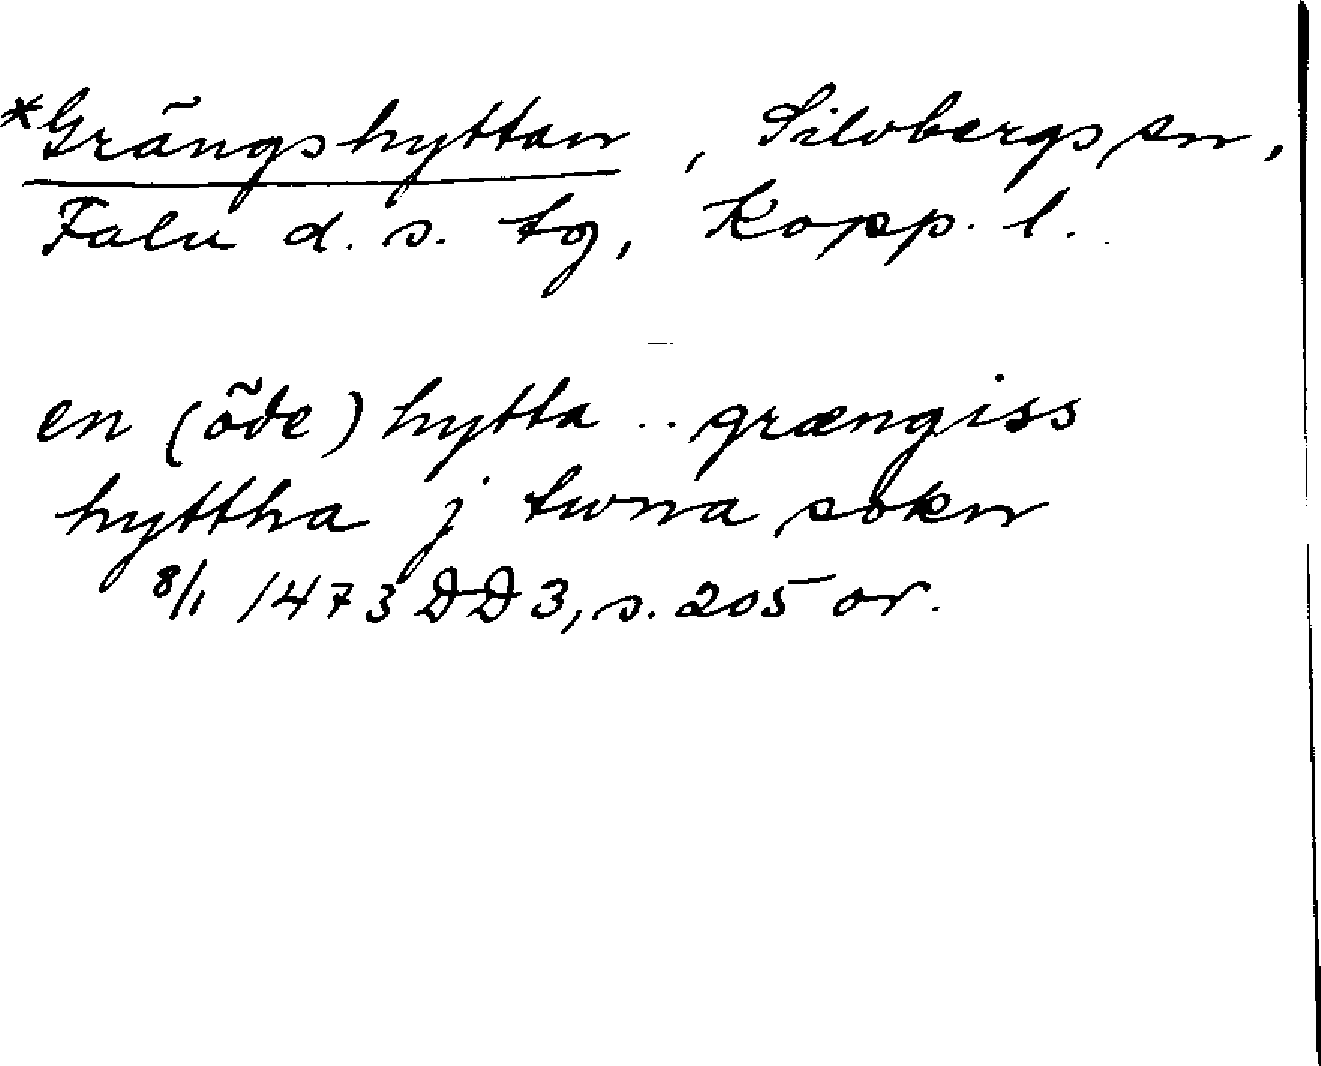 *Grängshyttan, Silvbergs sn,
Falu d. s. tg, Kopp. l.
en (öde) hytta .. grængiss
hyttha j twna sokn
8/1 1473 DD 3, s. 205 or.